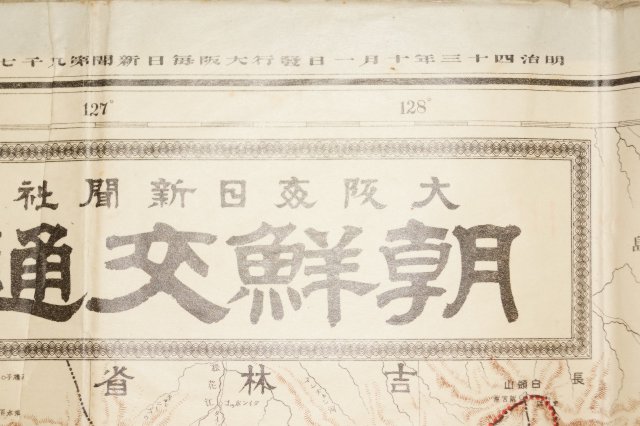 明治四十三年十月一日發行大阪每日新聞第九千七
127° 128°
大阪每日新聞社
朝鮮交通
吉林省
長白頭山
松花江